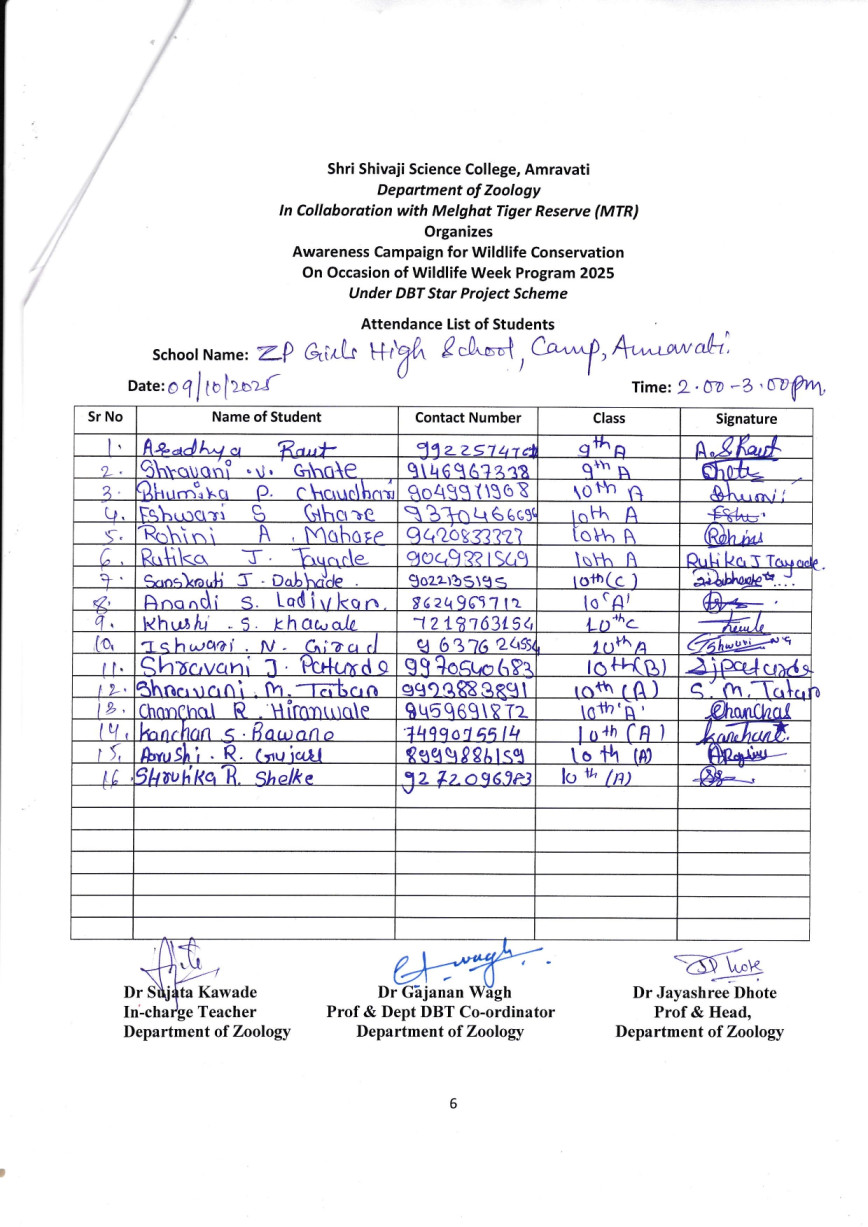 Shri Shivaji Science College, Amravati
Department of Zoology
In Collaboration with Melghat Tiger Reserve (MTR)
Organizes
Awareness Campaign for Wildlife Conservation
On Occasion of Wildlife Week Program 2025
Under DBT Star Project Scheme
Attendance List of Students
School Name: ZP Girls High School, Camp, Amravati.
Date: 09/10/2025 Time: 2.00-3.00pm.
Sr No Name of Student Contact Number Class Signature
1. Aradhya Raut 9th A
2. Shravani .V. Ghate 9146967338 9th A
3. Bhumika P. Chaudhari 9049971968 10th A
4. Eshwari S Ghare 10th A
5. Rohini A. Mahore 9420833327 10th A Rohini
6. Rutika J. Tayade 9049331549 10th A Rutika J Tayade.
7. Sanskruti J. Dabhade. 9022135195 10th (C)
8. Anandi S. Ladivkar. 8624969712 10 'A'
9. Khushi . S. Khawale 7218763154 10th C
10. Ishwari. N. Girad 10th A
11. Shravani J. Paturde 9970540683 10th (B) SJPaturde
12. Shravani. M. Tatar 9923883891 10th (A) S. M. Tatar
13. Chanchal R. Hiranwale 8459691872 10th 'A' Chanchal
14. Kanchan S. Bawane 7499075514 10th (A)
15. Arushi. R. Gujar 8999886159 10 th (A)
16. Shrutika R. Shelke 9272096983 10 th (A)
Dr Sujata Kawade Dr Gajanan Wagh Dr Jayashree Dhote
In-charge Teacher Prof & Dept DBT Co-ordinator Prof & Head,
Department of Zoology Department of Zoology Department of Zoology
6